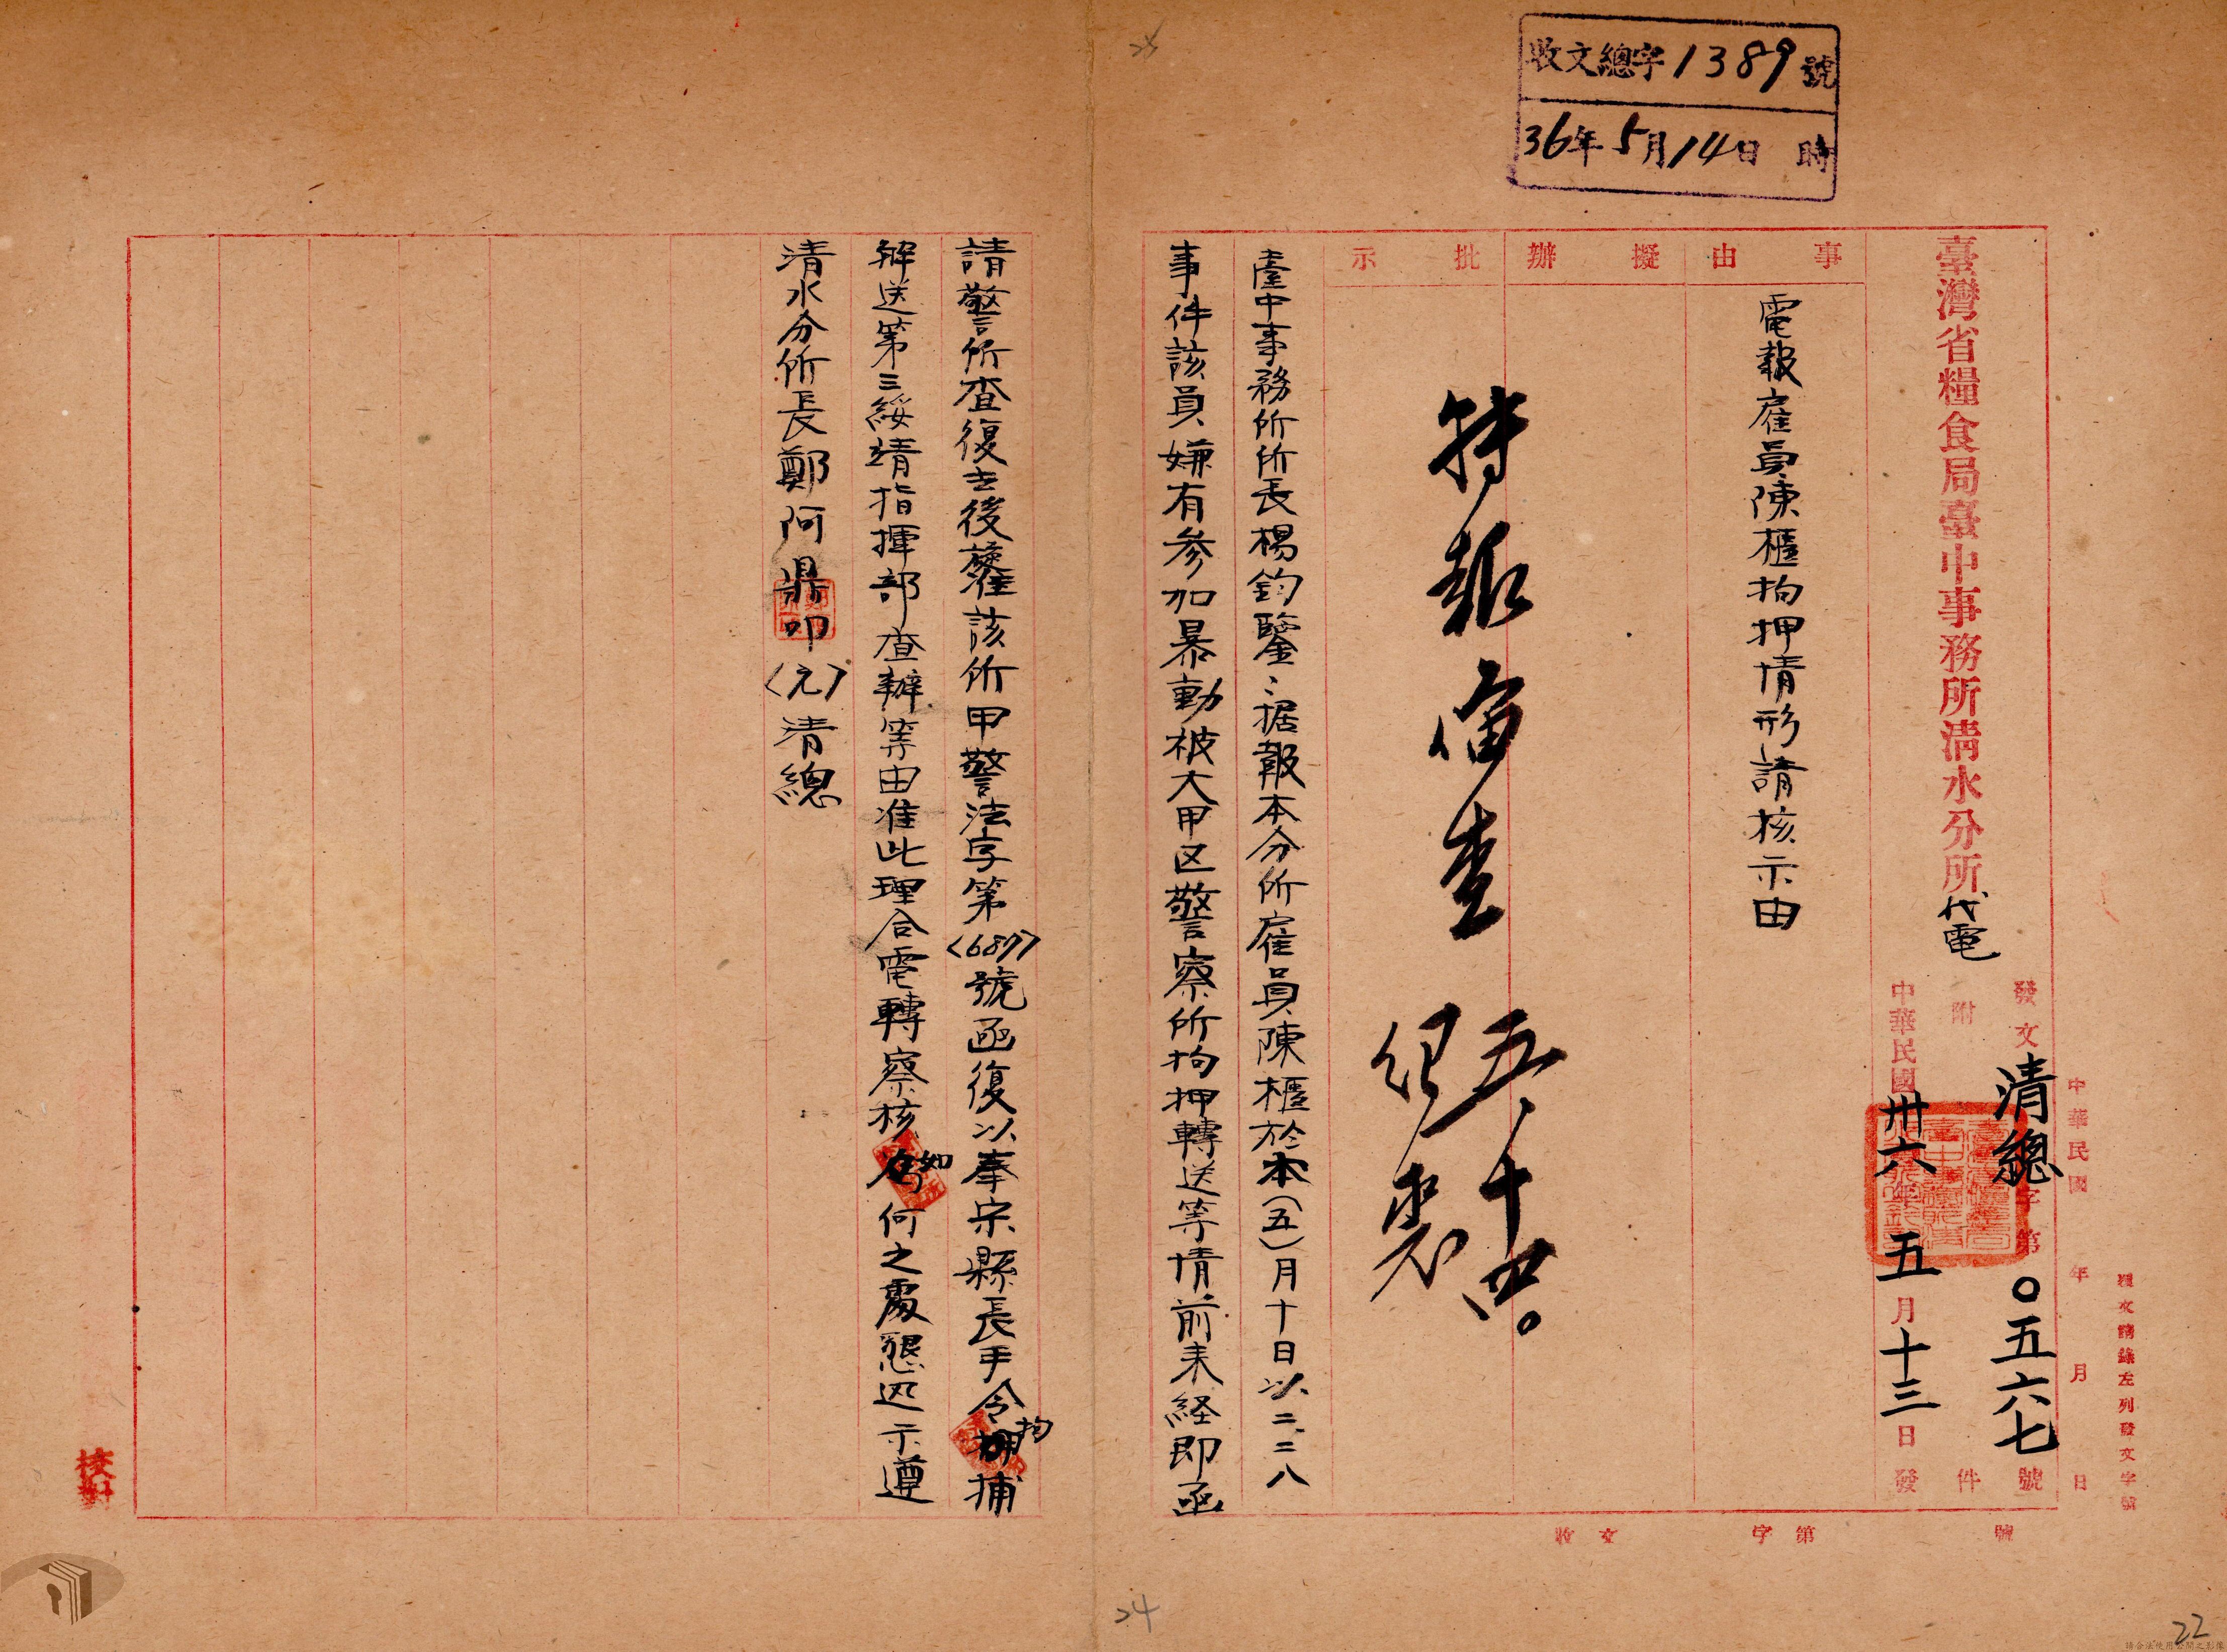 收文總字1389號
36年5月14日 時
復文請錄左列發文字號
中華民國 年 月 日
發文清總字第〇五六七號
附 件
中華民國卅六年五月十三日發
臺灣省糧食局臺中事務所清水分所代電
事由
電報雇員陳櫃拘押情形請核示由
擬辦
批示
五、十四。
臺中事務所所長楊鈞鑒：据報本分所雇員陳櫃於本(五)月十日以二、二八
事件該員嫌有參加暴動被大甲区警察所拘押轉送等情前来経即函
請警所查復去後茲准該所甲警法字第(687)號函復以奉宗縣長手令拘捕
解送第三綏靖指揮部查辦等由准此理合電轉察核如何之處懇迅示遵
清水分所長鄭阿鼎叩(元)清總
收文 字第 號
校對
24
22